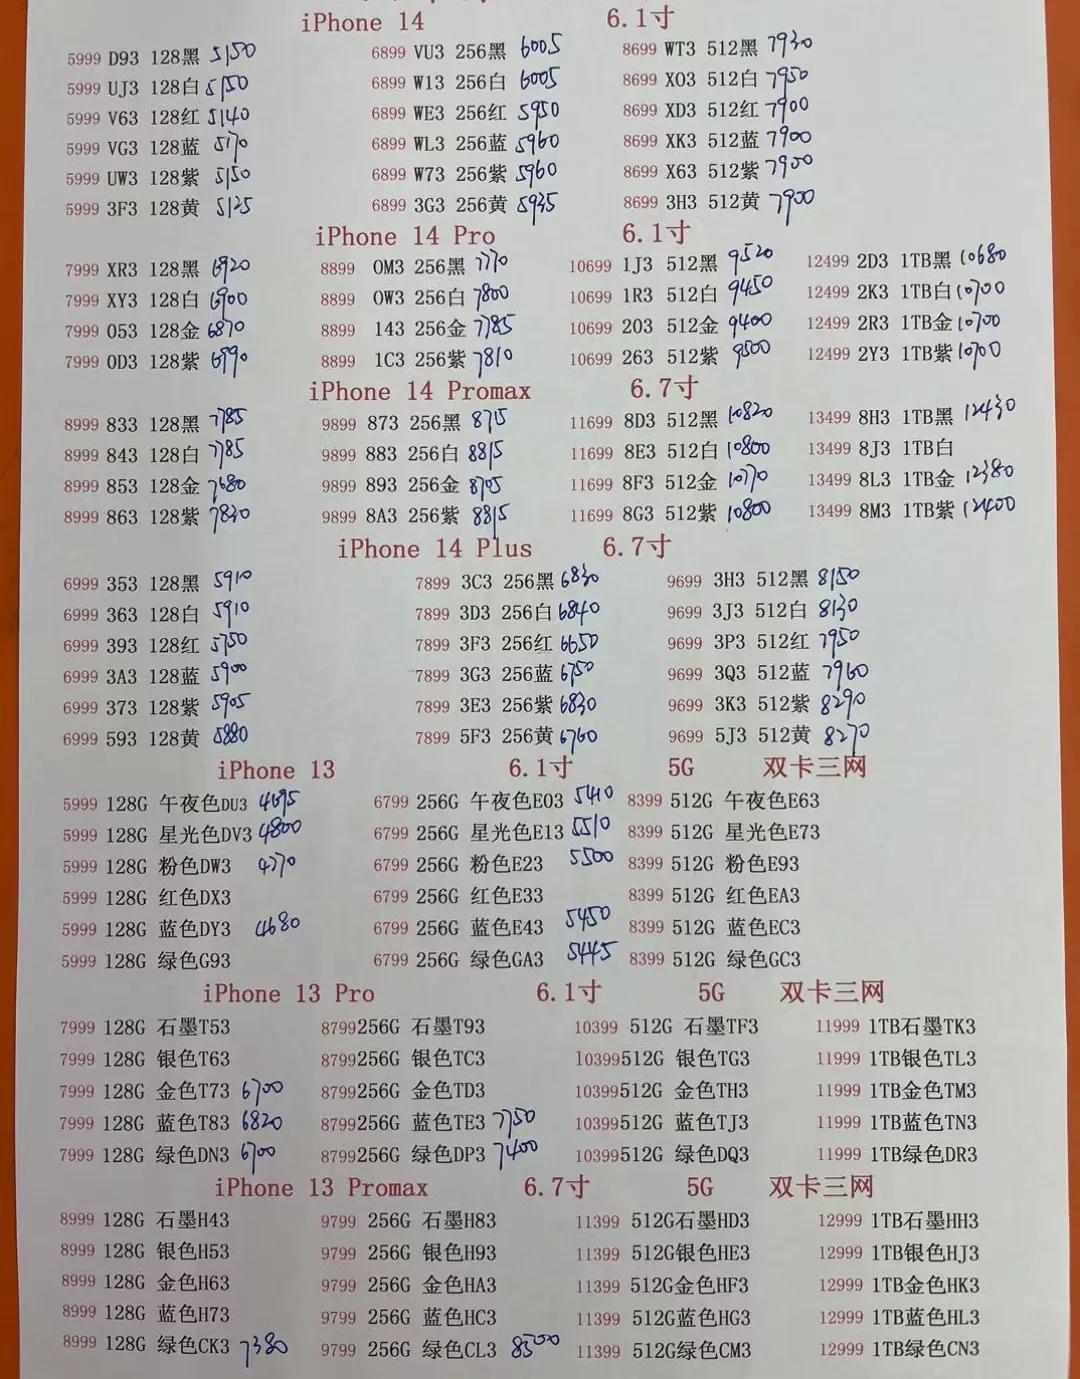 iPhone 14 6.1寸
5999 D93 128黑 5150 6899 VU3 256黑 6005 8699 WT3 512黑 7930
5999 UJ3 128白 5150 6899 W13 256白 6005 8699 XO3 512白 7950
5999 V63 128红 5140 6899 WE3 256红 5950 8699 XD3 512红 7900
5999 VG3 128蓝 5170 6899 WL3 256蓝 5960 8699 XK3 512蓝 7900
5999 UW3 128紫 5150 6899 W73 256紫 5960 8699 X63 512紫 7900
5999 3F3 128黄 5125 6899 3G3 256黄 5935 8699 3H3 512黄 7900
iPhone 14 Pro 6.1寸
7999 XR3 128黑 6920 8899 0M3 256黑 7770 10699 1J3 512黑 9520 12499 2D3 1TB黑 10680
7999 XY3 128白 6900 8899 0W3 256白 7800 10699 1R3 512白 9450 12499 2K3 1TB白 10700
7999 053 128金 6870 8899 143 256金 7785 10699 203 512金 9400 12499 2R3 1TB金 10700
7999 0D3 128紫 6990 8899 1C3 256紫 7810 10699 263 512紫 9500 12499 2Y3 1TB紫 10700
iPhone 14 Promax 6.7寸
8999 833 128黑 7785 9899 873 256黑 8715 11699 8D3 512黑 10820 13499 8H3 1TB黑 12430
8999 843 128白 7785 9899 883 256白 8815 11699 8E3 512白 10800 13499 8J3 1TB白
8999 853 128金 7680 9899 893 256金 8705 11699 8F3 512金 10770 13499 8L3 1TB金 12380
8999 863 128紫 7830 9899 8A3 256紫 8815 11699 8G3 512紫 10800 13499 8M3 1TB紫 12400
iPhone 14 Plus 6.7寸
6999 353 128黑 5910 7899 3C3 256黑 6830 9699 3H3 512黑 8150
6999 363 128白 5910 7899 3D3 256白 6840 9699 3J3 512白 8130
6999 393 128红 5750 7899 3F3 256红 6650 9699 3P3 512红 7950
6999 3A3 128蓝 5900 7899 3G3 256蓝 6750 9699 3Q3 512蓝 7960
6999 373 128紫 5905 7899 3E3 256紫 6830 9699 3K3 512紫 8290
6999 593 128黄 5880 7899 5F3 256黄 6760 9699 5J3 512黄 8270
iPhone 13 6.1寸 5G 双卡三网
5999 128G 午夜色DU3 4695 6799 256G 午夜色E03 5410 8399 512G 午夜色E63
5999 128G 星光色DV3 4800 6799 256G 星光色E13 5510 8399 512G 星光色E73
5999 128G 粉色DW3 4770 6799 256G 粉色E23 5500 8399 512G 粉色E93
5999 128G 红色DX3 6799 256G 红色E33 8399 512G 红色EA3
5999 128G 蓝色DY3 4680 6799 256G 蓝色E43 5450 8399 512G 蓝色EC3
5999 128G 绿色G93 6799 256G 绿色GA3 5445 8399 512G 绿色GC3
iPhone 13 Pro 6.1寸 5G 双卡三网
7999 128G 石墨T53 8799256G 石墨T93 10399 512G 石墨TF3 11999 1TB石墨TK3
7999 128G 银色T63 8799256G 银色TC3 10399512G 银色TG3 11999 1TB银色TL3
7999 128G 金色T73 6700 8799256G 金色TD3 10399512G 金色TH3 11999 1TB金色TM3
7999 128G 蓝色T83 6820 8799256G 蓝色TE3 7750 10399512G 蓝色TJ3 11999 1TB蓝色TN3
7999 128G 绿色DN3 6700 8799256G 绿色DP3 7400 10399512G 绿色DQ3 11999 1TB绿色DR3
iPhone 13 Promax 6.7寸 5G 双卡三网
8999 128G 石墨H43 9799 256G 石墨H83 11399 512G石墨HD3 12999 1TB石墨HH3
8999 128G 银色H53 9799 256G 银色H93 11399 512G银色HE3 12999 1TB银色HJ3
8999 128G 金色H63 9799 256G 金色HA3 11399 512G金色HF3 12999 1TB金色HK3
8999 128G 蓝色H73 9799 256G 蓝色HC3 11399 512G蓝色HG3 12999 1TB蓝色HL3
8999 128G 绿色CK3 7380 9799 256G 绿色CL3 8500 11399 512G绿色CM3 12999 1TB绿色CN3